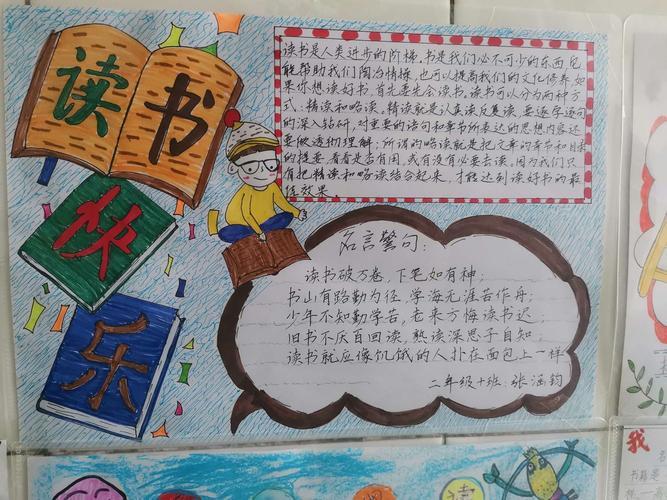 读书
快
乐
读书是人类进步的阶梯,书是我们必不可少的东西,它
能帮助我们陶冶情操,也可以提高我们的文化修养,如
果你想读好书,首先要先会读书,读书可以分为两种方
式:精读和略读。精读就是认真读反复读,要逐字逐句
的深入钻研,对重要的语句和章节所表达的思想内容还
要做透彻理解;所谓的略读就是把文章的章节和目录
的提要,看看是否有用,或有没有必要去读。因为我们只
有把精读和略读结合起来,才能达到读好书的最
佳效果
名言警句:
读书破万卷,下笔如有神;
书山有路勤为径,学海无涯苦作舟;
少年不知勤学苦,老来方悔读书迟;
旧书不厌百回读,熟读深思子自知;
读书就应像饥饿的人扑在面包上一样
二年级十班:张涵钧
我
书籍是